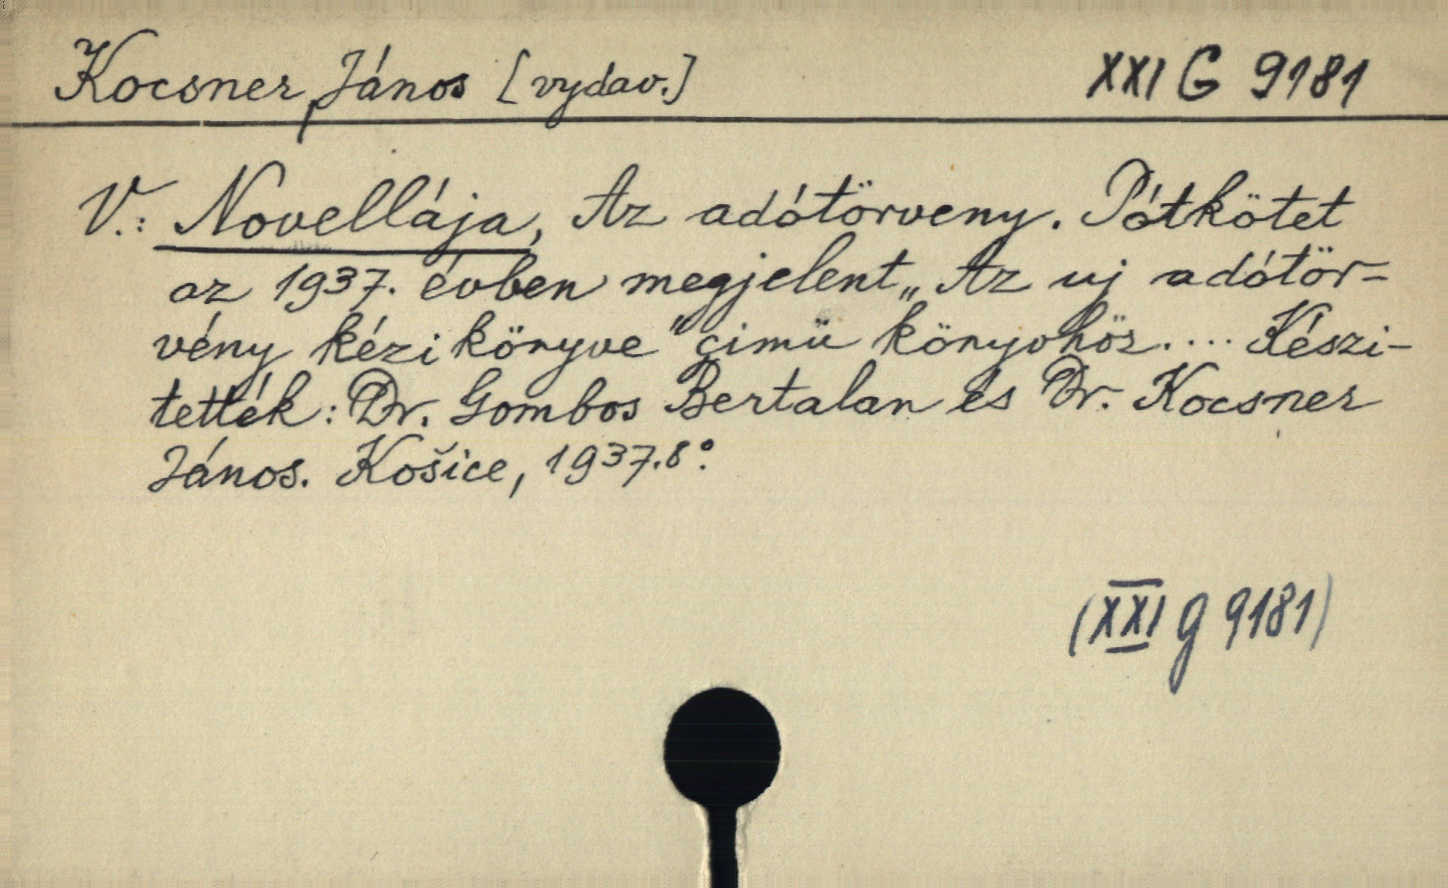 Kocsner, János [vydav.] XXI G 9181
V.: Novellája, Az adótörveny. Pótkötet
az 1937. évben megjelent „Az uj adótör=
vény kézikönyve" çimü könyvhöz.... Készi-
tették: Dr. Gombos Bertalan és Dr. Kocsner
János. Košice, 1937. 8°.
(XXI g 9181)